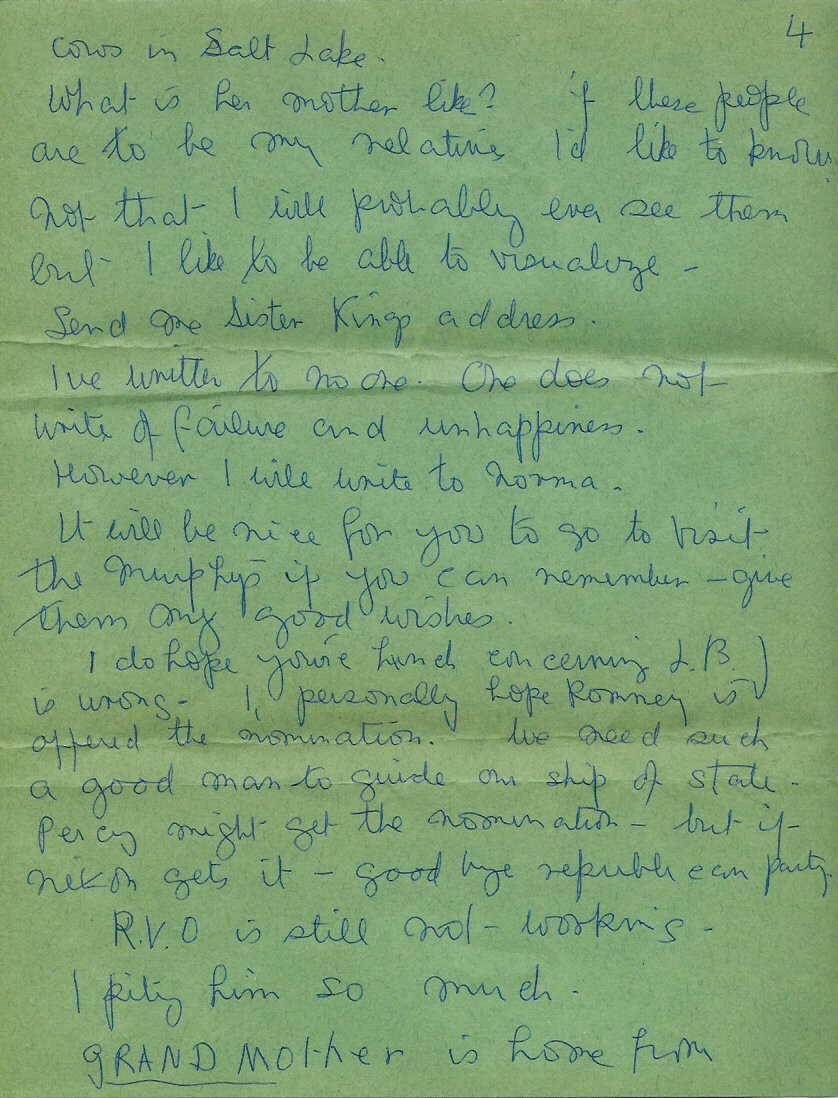 4
cows in Salt Lake.
What is her mother like? if these people
are to be my relatives I'd like to know.
not that I will probably ever see them
but I like to be able to visualize -
Send me Sister King's address.
I've written to no one. One does not
write of failure and unhappiness.
However I will write to Norma.
It will be nice for you to go to visit
the Murphys if you can remember - give
them my good wishes.
I do hope you're hunch concerning L.B.J
is wrong - I, personally hope Romney is
offered the nomination. We need such
a good man to guide our ship of state.
Percy might get the nomination - but if
nixon gets it - good bye republican party.
R.V.O is still not working -
I pity him so much.
gRAND MOther is home from